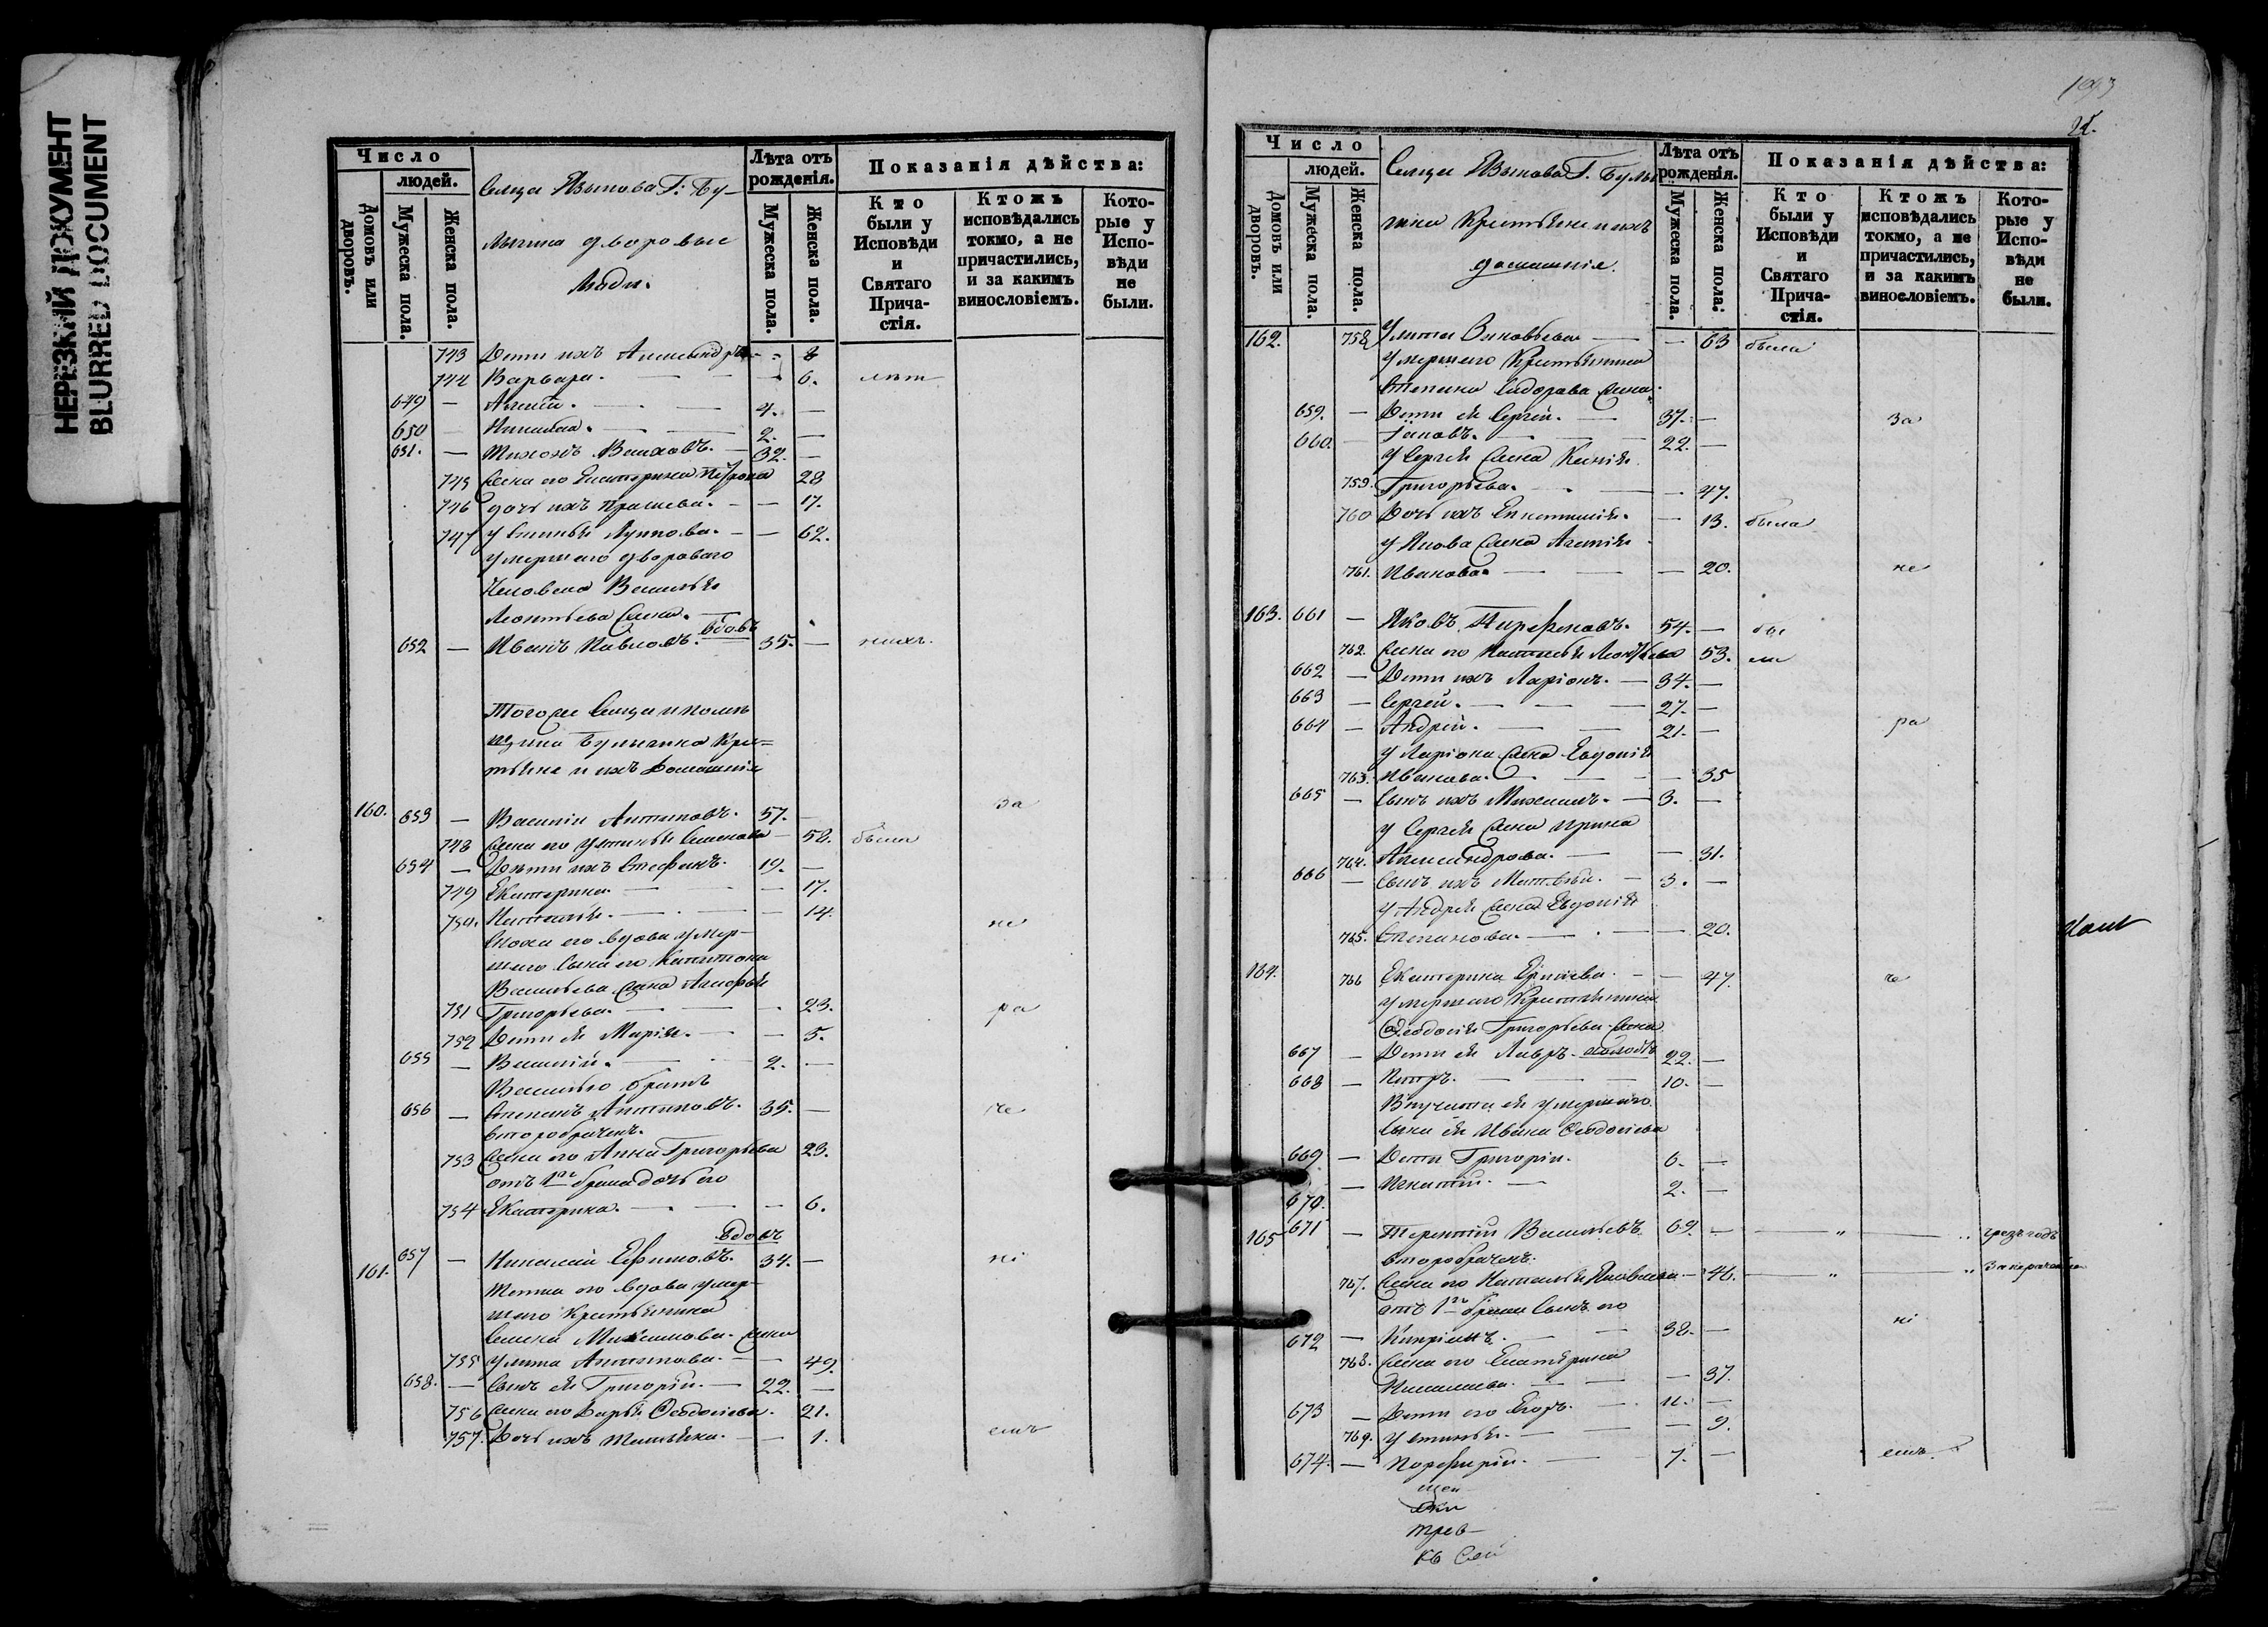 НЕРЕЗКИЙ ДОКУМЕНТ
BLURRED DOCUMENT
Число
людей.
Домовъ или дворовъ.
Мужеска пола.
Женска пола.
Сельца Языкова Г: Бу-
лыгина дворовые
люди.
Лѣта отъ рожденія.
Мужеска пола.
Женска пола.
Показанія дѣйства:
Кто были у Исповѣди и Святаго Прича-стія.
Ктожъ исповѣдались токмо, а не причастились, и за какимъ винословіемъ.
Кото-рые у Испо-вѣди не были.
743 Дети ихъ Александра — 8
744 Варвара. — — — 6. лѣт
649 — Алексѣй. — — 4. —
650 — Николай. — — 2. —
651. — — 32. —
745 Жена его Екатерина Петрова 28
746 дочь ихъ Прасковья. — — 17.
747 Устинья — — 62.
умершаго двороваго
Человека Василья
Леонтьева жена.
вдовъ
652 — Иванъ Павловъ. 35. — нихъ.
Того же Сельца и помѣ
щика Булыгина Кре=
стьяне и ихъ домашнія
160. 653 — Василій Антиповъ. 57. — за
748 жена его Устинья Семенова — 58. была
654 — Дѣти ихъ Стефанъ. 19. —
749 Екатерина. — — 17.
750. Наталья. — — — 14. не
Сноха его вдова умер-
шаго сына его Капитона
Васильева жена
751 Григорьева. — — — 23. ра
752 Дети ея Марія. — — 5.
655 — Василій. — — 2. —
Василью братъ
656 — Степанъ Антиповъ. 35. — че
второбрачен.
753 жена его Анна Григорьева 23.
отъ 1го брака дочь его
754 Екатерина. — — — 6.
вдовъ
161. 657 — Николай Ефимовъ. 34. — ні
Тетка его вдова умер-
шаго Крестьянина
Максимова жена
755 Улита Антипова. — — 49.
658. — Сынъ ея Григорій. — 22. —
756 жена его Дарья Ѳеодосіева. 21.
757. Дочь ихъ Татьяна. — — 1. емъ
1993
Число
людей.
Домовъ или дворовъ.
Мужеска пола.
Женска пола.
Сельца Языкова Г. Булы
гина Крестьяне и ихъ
домашнія.
Лѣта отъ рожденія.
Мужеска пола.
Женска пола.
Показанія дѣйства:
Кто были у Исповѣди и Святаго Прича-стія.
Ктожъ исповѣдались токмо, а не причастились, и за какимъ винословіемъ.
Кото-рые у Испо-вѣди не были.
162. 758 Улита Зиновьева — — 63 была
умершаго Крестьянина
Степана Сидорова жена.
659. — Дети ея Сергей. — 37. — за
660. — Іаковъ. — — 22. —
У Сергея жена Ксенія
759. Григорьева. — — — 47.
760 Дочь ихъ — 13. была
У Якова жена
761. Иванова. — — — 20. не
163. 661 — Яковъ 54. — бы
762. жена его Наталья Леонтьева 53. ли
662 — Дети ихъ Ларіонъ. — 34. —
663 — Сергей. — — — 27. —
664 — Андрей. — — 21. — ра
У Ларіона жена Евдокія
763. Иванова. — — — 35
665 — Сынъ ихъ Михаилъ. — 3. —
У Сергея жена Ирина
764. Александрова. — — 31.
666 — Сынъ ихъ Матвѣй. — 3. —
У Андрея жена Евдокія
765. Степанова. — — — 20.
164. 766 Екатерина — — 47. че
умершаго Крестьянина
Ѳеодосія Григорьева жена
667 — Дети ея Лавръ. холостъ 22. —
668 — Петръ. — — — 10. —
Внучата ея умершаго
сына ея Ивана Ѳеодосіева
669 — Дети Григорій. 6. —
670. — Игнатій. — 2. —
165 671 — Терентій Васильевъ. 69. — — " — " чрезъ годъ
второбрачен.
767. жена его Наталья Яковлева — 46. — " — "
отъ 1го брака сынъ его ні
672 — Кипріанъ. — — 38. —
768. жена его Екатерина
Николаева. — — — 37.
673 — Дети его Егоръ. — 11. —
769. Устинья. — — — 9.
674. — Порфирій. — — 7. — емъ.